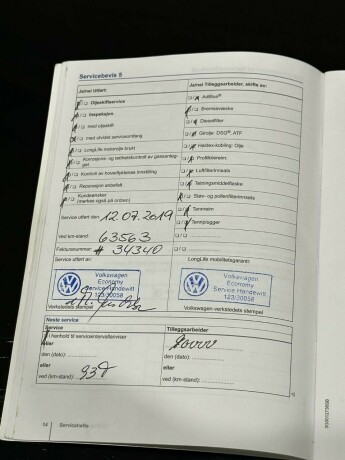 Servicebevis 5
Ja/nei Utført:
Ja/nei Tilleggsarbeider, skifte av:
Oljeskiftservice
AdBlue®
Inspeksjon
Bremsevæske
med oljeskift
Dieselfilter
med utvidet serviceomfang
Girolje: DSG®, ATF
LongLife motorolje brukt
Haldex-kobling: Olje
Korrosjons- og tetthetskontroll av gassanlegget
Partikkelrem
Kontroll av hovedlyktenes innstilling
Luftfilterinnsats
Reparasjon anbefalt
Tetningsmiddelflaske
Kundeønsker
(merkes også på ordren)
Støv- og pollenfilterinnsats
Tannreim
Service utført den: 12.07.2019
Tennplugger
ved km-stand: 63563
Fakturanummer: # 34340
Service utført av:
LongLife mobilitetsgaranti:
Volkswagen
Economy
Service Handewitt
123/30058
Volkswagen
Economy
Service Handewitt
123/30058
Verkstedets stempel
Volkswagen-verkstedets stempel
Neste service
Service
Tilleggsarbeider
I henhold til serviceintervallanviser
eller
den (dato):
den (dato):
eller
eller
ved (km-stand):
ved (km-stand):
54
Servicehefte